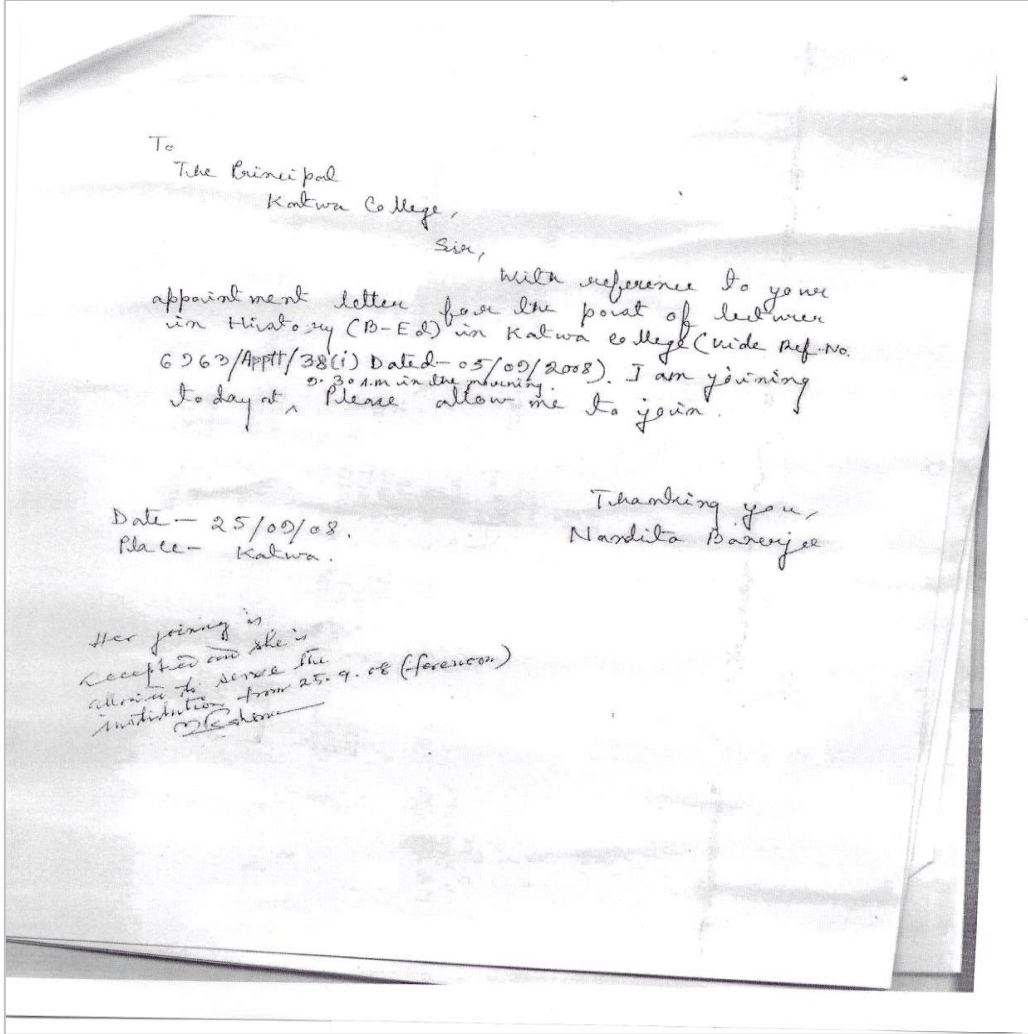 To
The Principal
Katwa College,
Sir,
With reference to your
appointment letter for the post of lecturer
in History (B-Ed) in Katwa college (vide Ref. No.
6963/Apptt/38(i) Dated- 05/09/2008). I am joining
9.30 A.M in the morning.
to day at ^ Please allow me to join.
Thanking you,
Nandita Banerjee
Date - 25/09/08.
Place - Katwa.
Her joining is
accepted and she is
allowed to serve the
institution from 25.9.08 (forenoon)